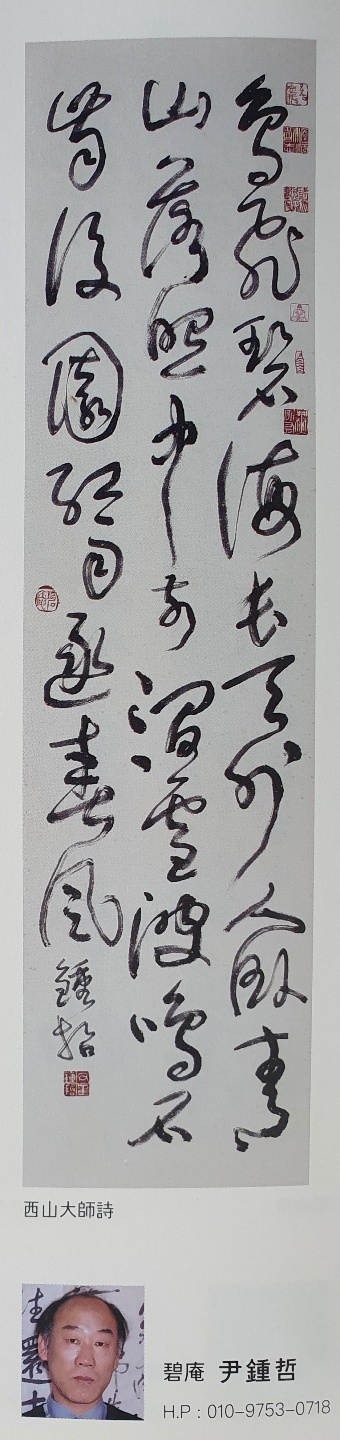 鳥飛碧海長天外人臥青
山落照中前澗雪波鳴石
齒後園紅雨逐春風 鍾哲
西山大師詩
碧庵 尹鍾哲
H.P : 010-9753-0718